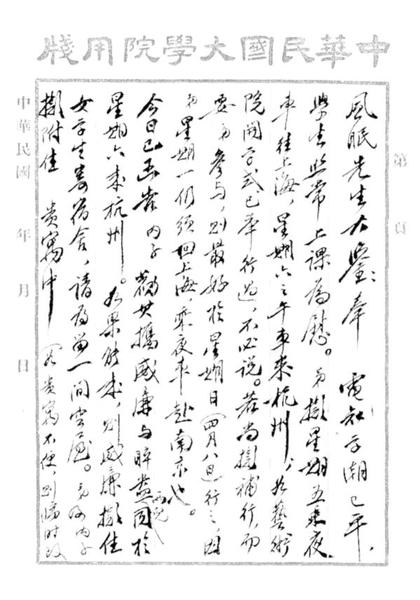 中華民國大學院用牋
第 頁
風眠先生大鑒:奉 電知學潮已平,
學生照常上課為慰。弟擬星期五乘夜
車往上海,星期六之午車來杭州,如藝術
院開學式已舉行過,不必說。若尚擬補行,而
要弟參与,則最好於星期日(四月八日)行之,因
弟星期一仍須回上海乘夜車赴南京也。
今日已函告內子 勸其攜威廉与睟盎兩兒同於
星期六來杭州。如果能來,則威廉擬住
女學生寄宿舍,請為留一間空屋。弟及內子
擬附住 貴寓中 (若貴寓不便,則臨時改
中華民國 年 月 日